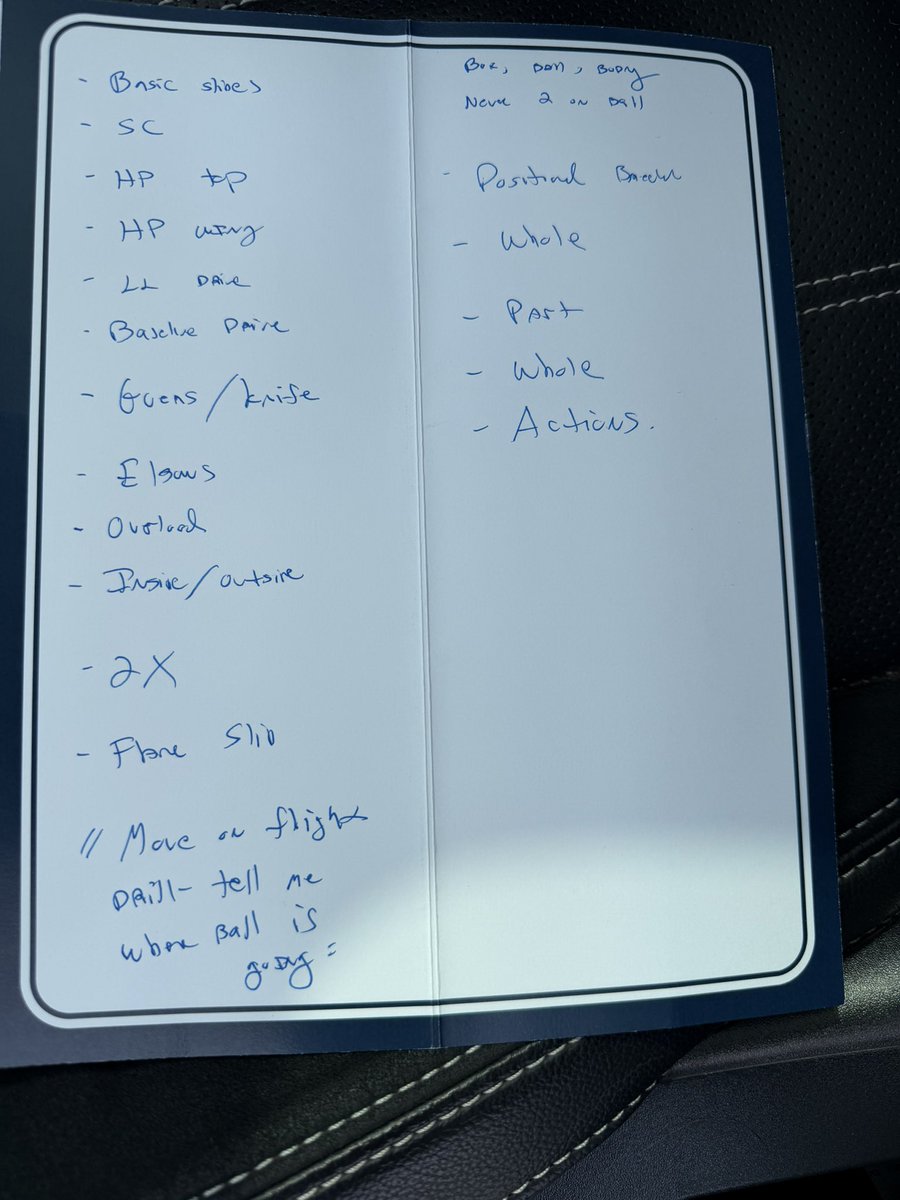 - Basic slides
- SC
- HP top
- HP wing
- LL Drive
- Baseline Drive
- Guens/knife
- Elbows
- Overload
- Inside/outside
- 2X
- Flare Slip
// Move on flight
Drill- tell me
where Ball is
going =
Ball, Body
Never 2 on Ball
- Positional
- Whole
- Part
- Whole
- Actions.